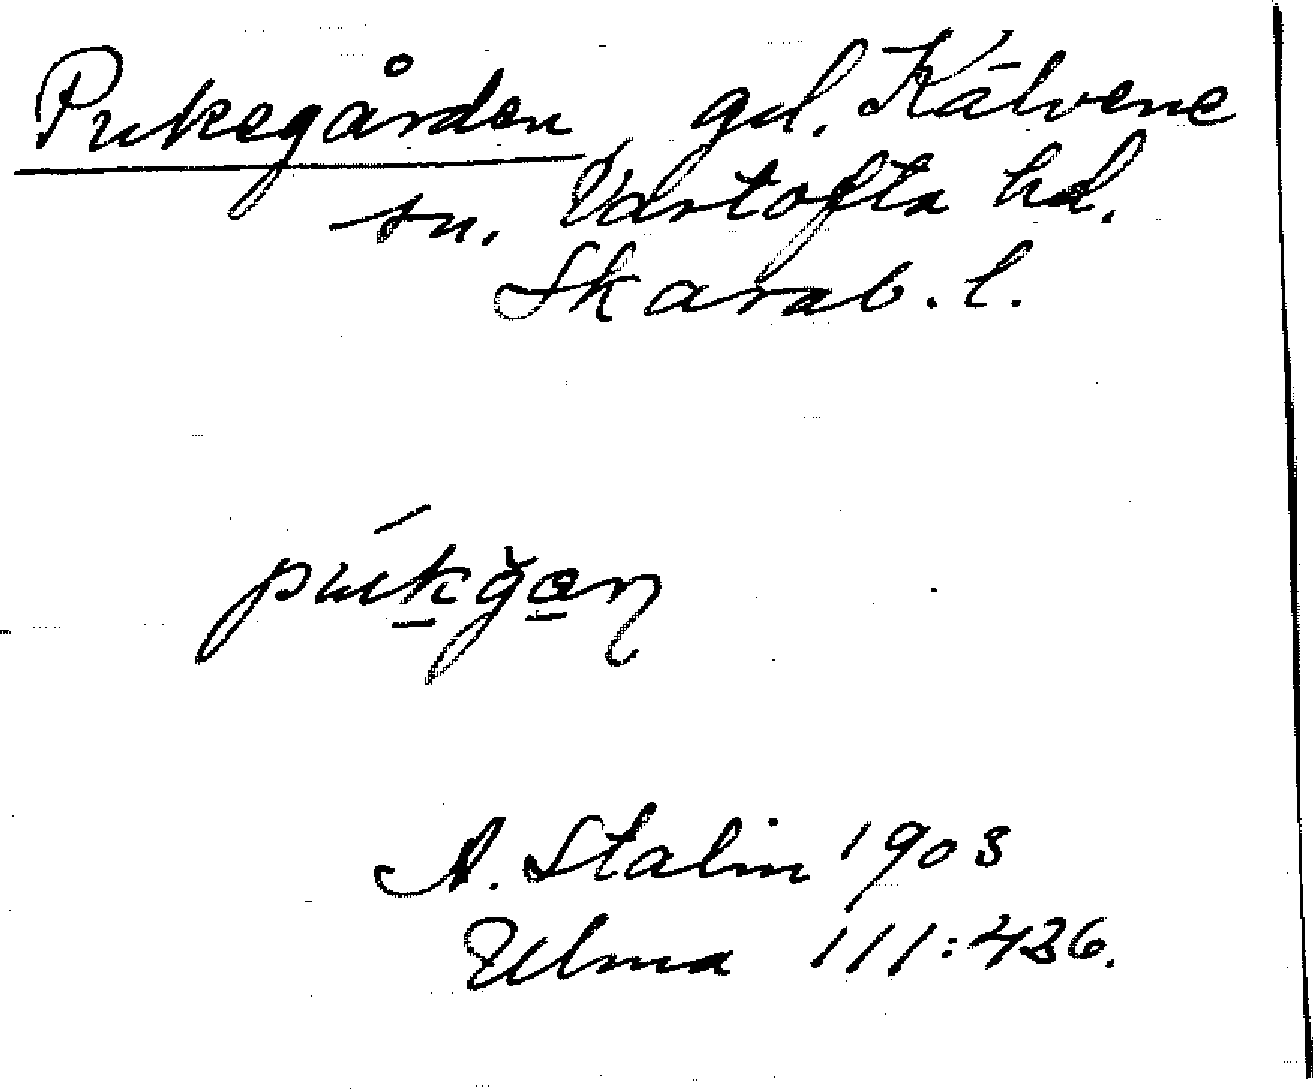 Pukegården gd. Kälvene
sn. Vartofta hd.
Skarab. l.
A. Stalin 1903
Ulma 111:436.